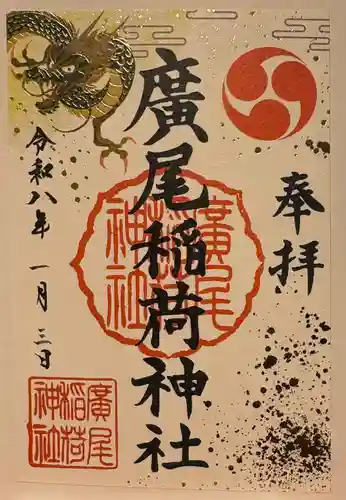 奉拝
廣尾稲荷神社
令和八年 一月 三日
廣尾稲荷神社
廣尾稲荷神社